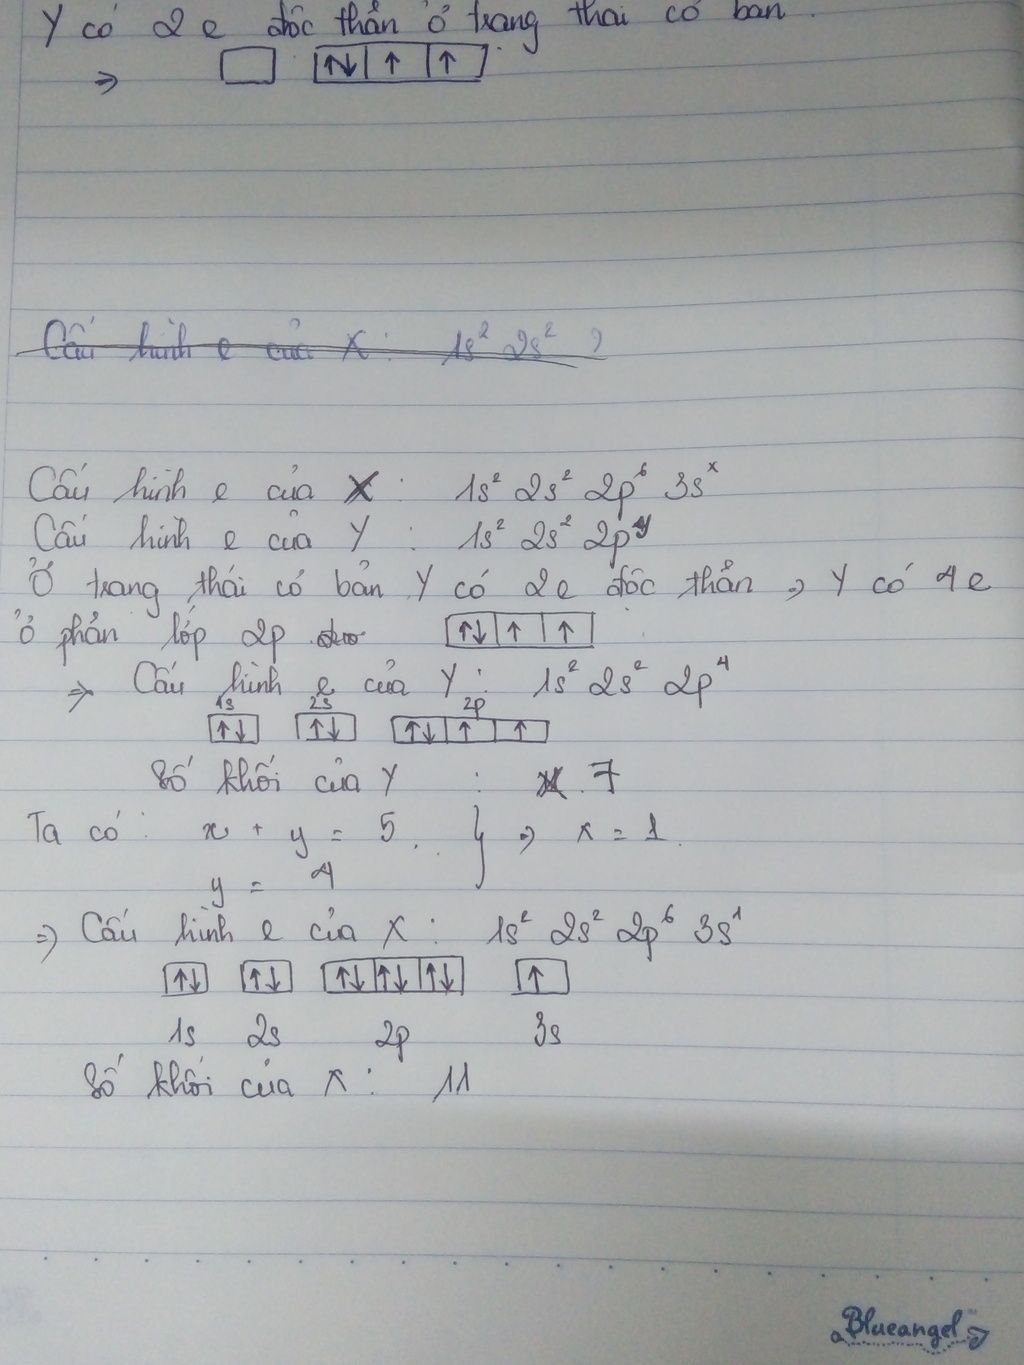 Y có 2 e độc thân ở trạng thái cơ bản.
⇒ ↑↓ ↑ ↑
Cấu hình e của X : 1s² 2s² 2
Cấu hình e của X : 1s² 2s² 2p⁶ 3sˣ
Cấu hình e của Y : 1s² 2s² 2pʸ
Ở trạng thái cơ bản Y có 2e độc thân ⇒ Y có 4 e
ở phân lớp 2p ↑↓ ↑ ↑
⇒ Cấu hình e của Y : 1s² 2s² 2p⁴
1s 2s 2p
↑↓ ↑↓ ↑↓ ↑ ↑
Số khối của Y : 7
Ta có : x + y = 5 } ⇒ x = 1.
y = 4
⇒ Cấu hình e của X : 1s² 2s² 2p⁶ 3s¹
↑↓ ↑↓ ↑↓ ↑↓ ↑↓ ↑
1s 2s 2p 3s
Số khối của X : 11
Blueangel